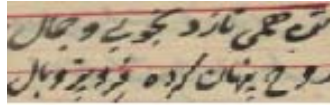 تن همی نازد بخوبی و جمال
روح پنهان کرده فر و پر و بال